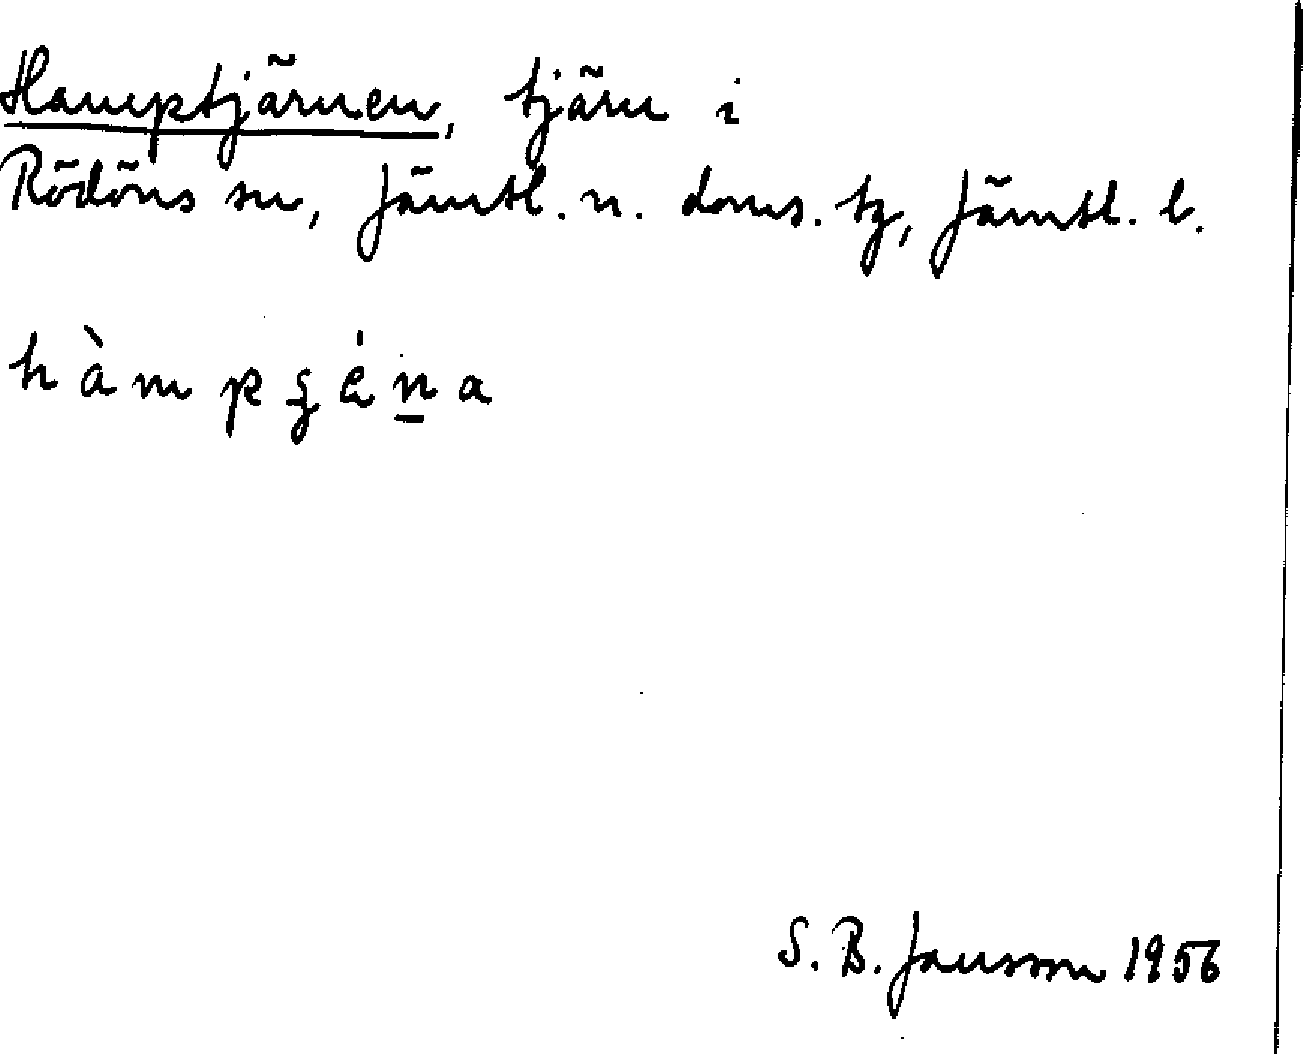 Hamptjärnen, tjärn i
Rödöns sn, Jämtl. n. doms. tg, Jämtl. l.
hàmpʂén̲a
S. B. Jansson 1956